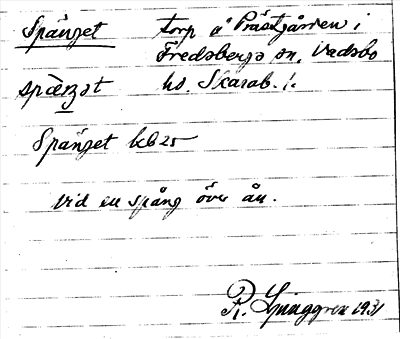 Spänget torp å Prästgården i
Fredsbergs sn, Vadsbo
spæŋət hd. Skarab. l.
Spänget kb 25
vid en spång över ån.
R. Ljunggren 1931